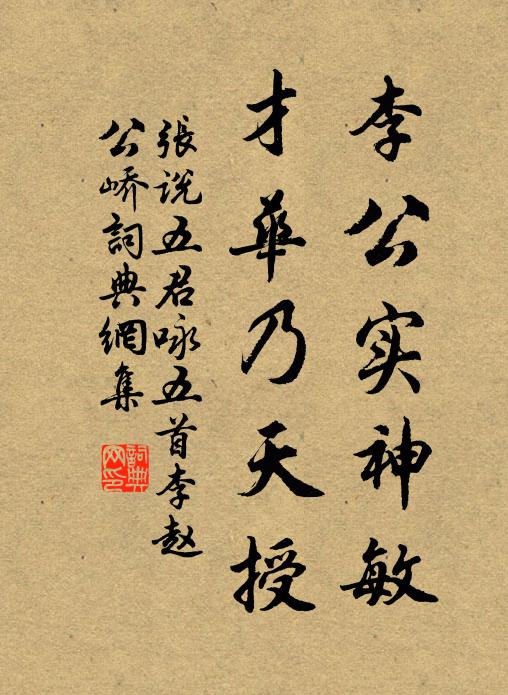 李公实神敏
才華乃天授
張説五君咏五首李赵
公嶠詞典網集
詞典网印